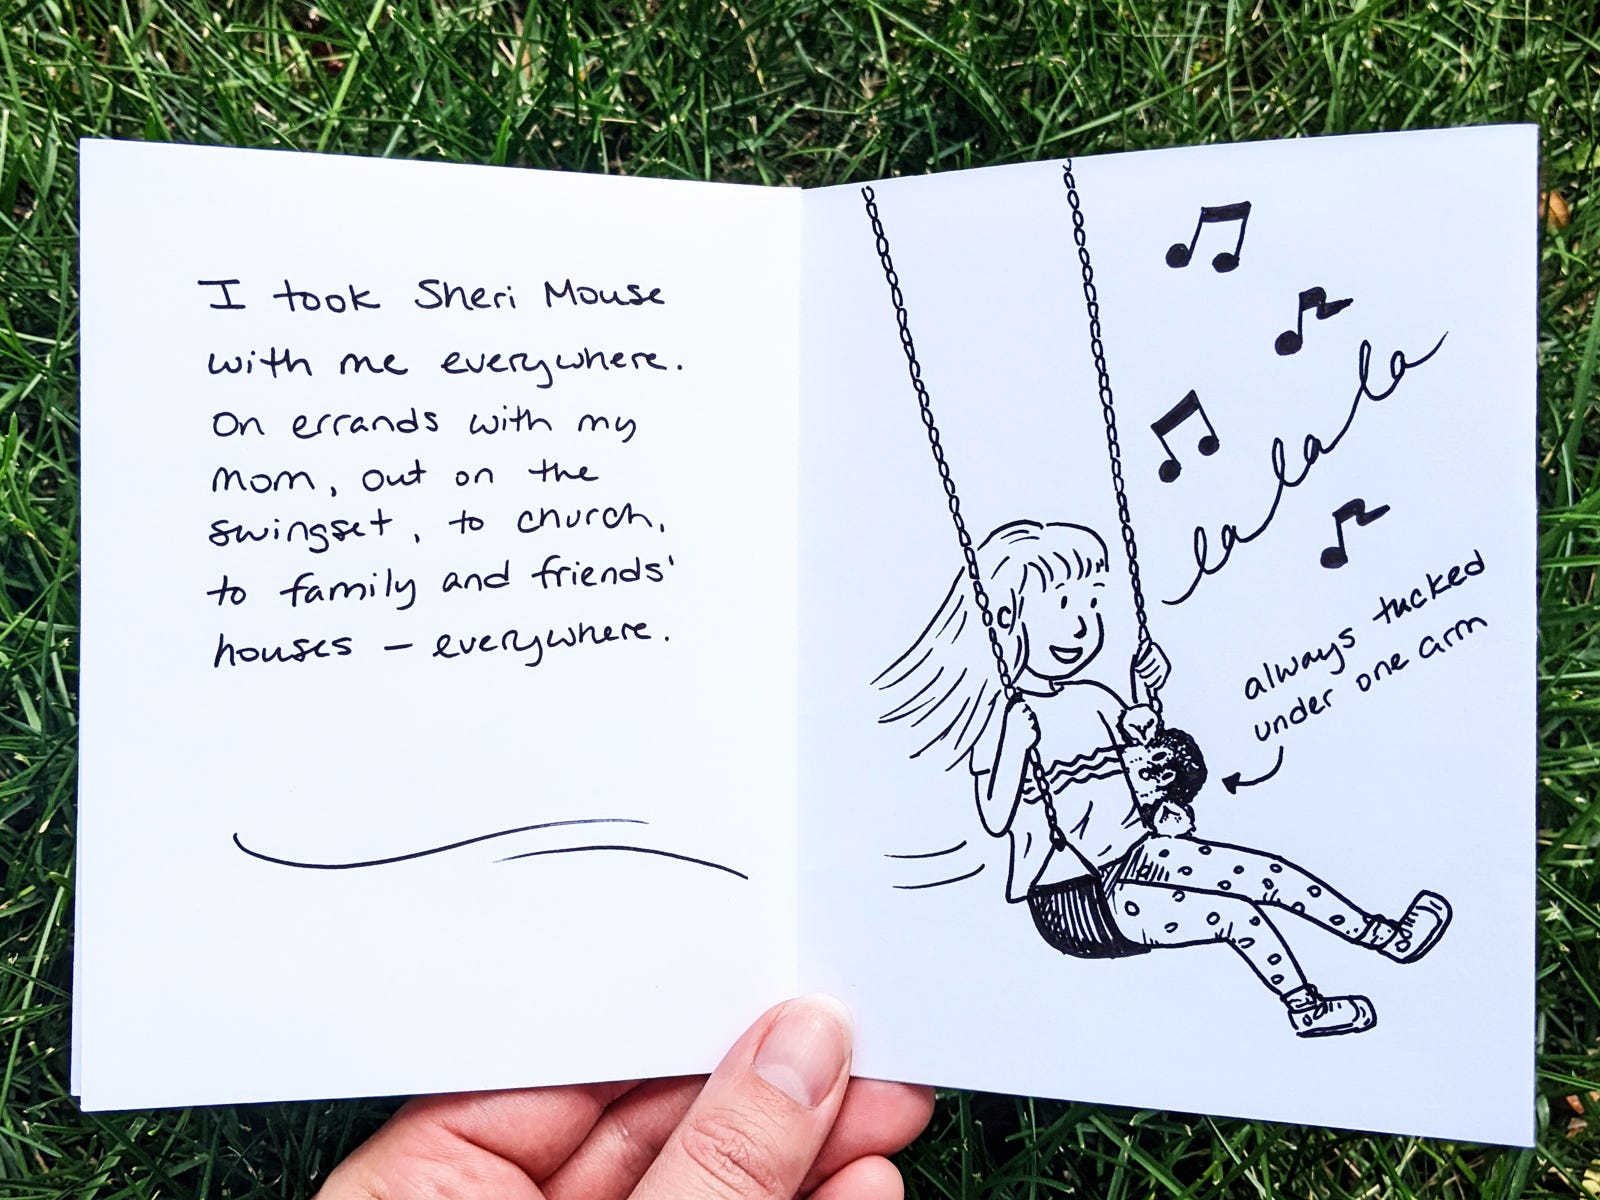 I took Sheri Mouse
with me everywhere.
On errands with my
mom, out on the
swingset, to church,
to family and friends'
houses – everywhere.
la la la la
always tucked
under one arm